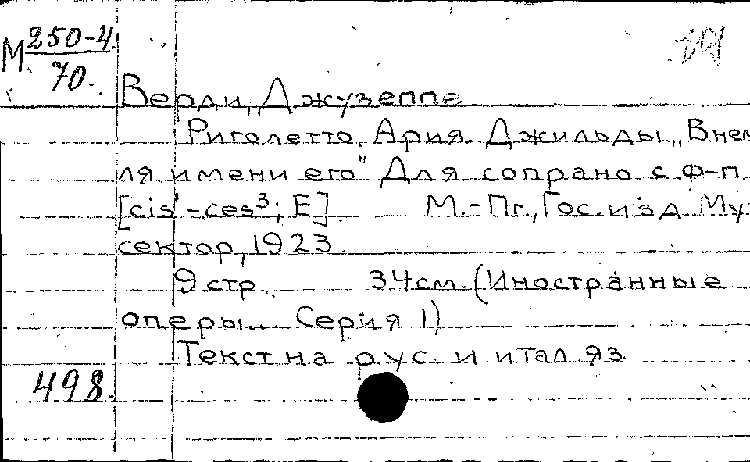 М 250-4
70.
Верди, Джузеппе
Риголетто. Ария Джильды „Внем
ля имени его" Для сопрано с ф-п
[cis¹-ces³; E] М.-Пг., Гос. изд. Муз.
сектор, 1923.
9 стр. 34см. (Иностранные
оперы. Серия 1)
Текст на рус. и итал яз.
498.